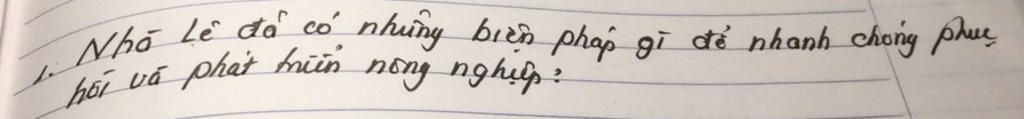 1. Nhà Lê đã có những biện pháp gì để nhanh chóng phục
hồi và phát triển nông nghiệp?